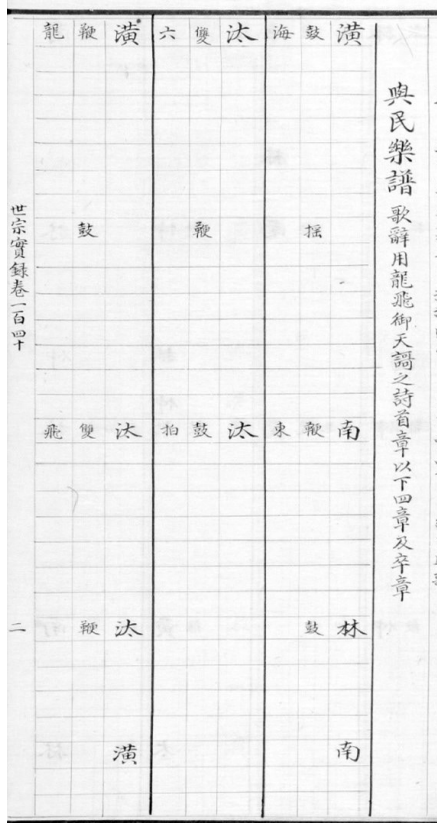 與民樂譜 歌辭用龍飛御天謌之詩首章以下四章及卒章
潢 南 林 南
鼓 搖 鞭 鼓
海 東
汰 汰
雙 鞭 鼓
六 拍
潢 汰 汰 潢
鞭 鼓 雙 鞭
龍 飛
世宗實錄卷一百四十 二